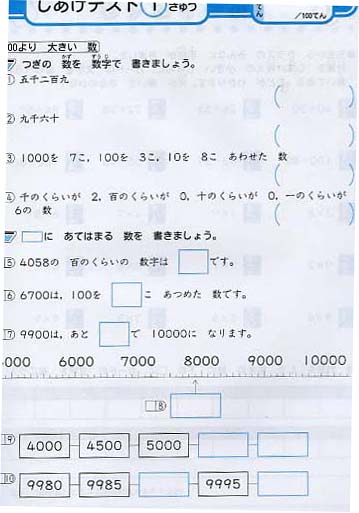 しあげテスト 1 さんすう
てん /100てん
00より 大きい 数
つぎの 数を 数字で 書きましょう。
① 五千二百九
② 九千六十
③ 1000を 7こ, 100を 3こ, 10を 8こ あわせた 数
④ 千のくらいが 2, 百のくらいが 0, 十のくらいが 0, 一のくらいが
6の 数
に あてはまる 数を 書きましょう。
⑤ 4058の 百のくらいの 数字は です。
⑥ 6700は, 100を こ あつめた 数です。
⑦ 9900は, あと で 10000に なります。
5000 6000 7000 8000 9000 10000
⑧
⑨ 4000 4500 5000
⑩ 9980 9985 9995